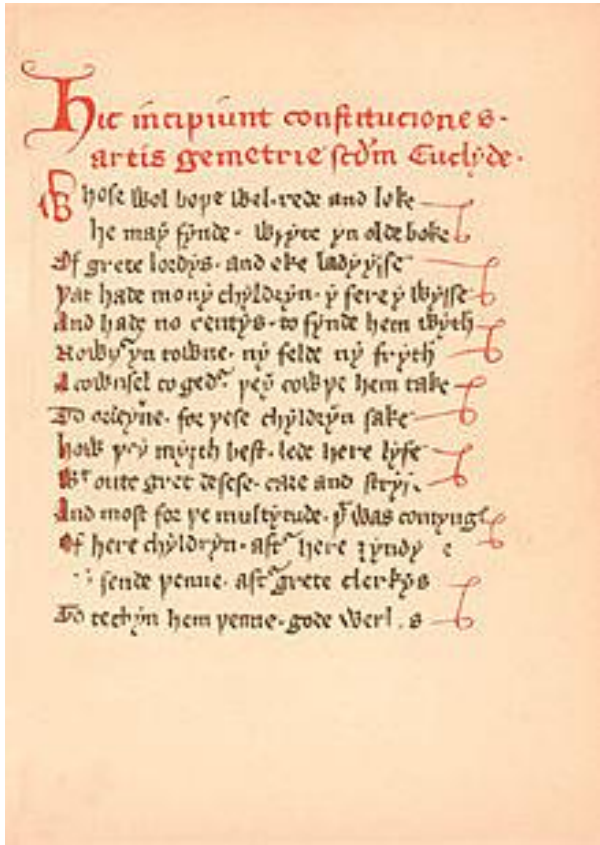 Hic incipiunt constituciones
artis gemetrie scdm Euclyde.
Whose wol bope wel rede and loke
he may fynde wryte yn olde boke
Of grete lordys and eke ladyysse
þat hade mony chyldryn y fere y wysse
And hade no rentys to fynde hem wyth
Nowþr yn towne ny felde ny fryth
A cownsel togedr þey cowþe hem take
To ordeyne for þese chyldryn sake
how þey myȝth best lede here lyfe
Wt oute gret desese care and
And most for þe multytude þt was comyng
Of here chyldryn aftr here
sende þenne aftr grete clerkys
To techyn hem þenne gode